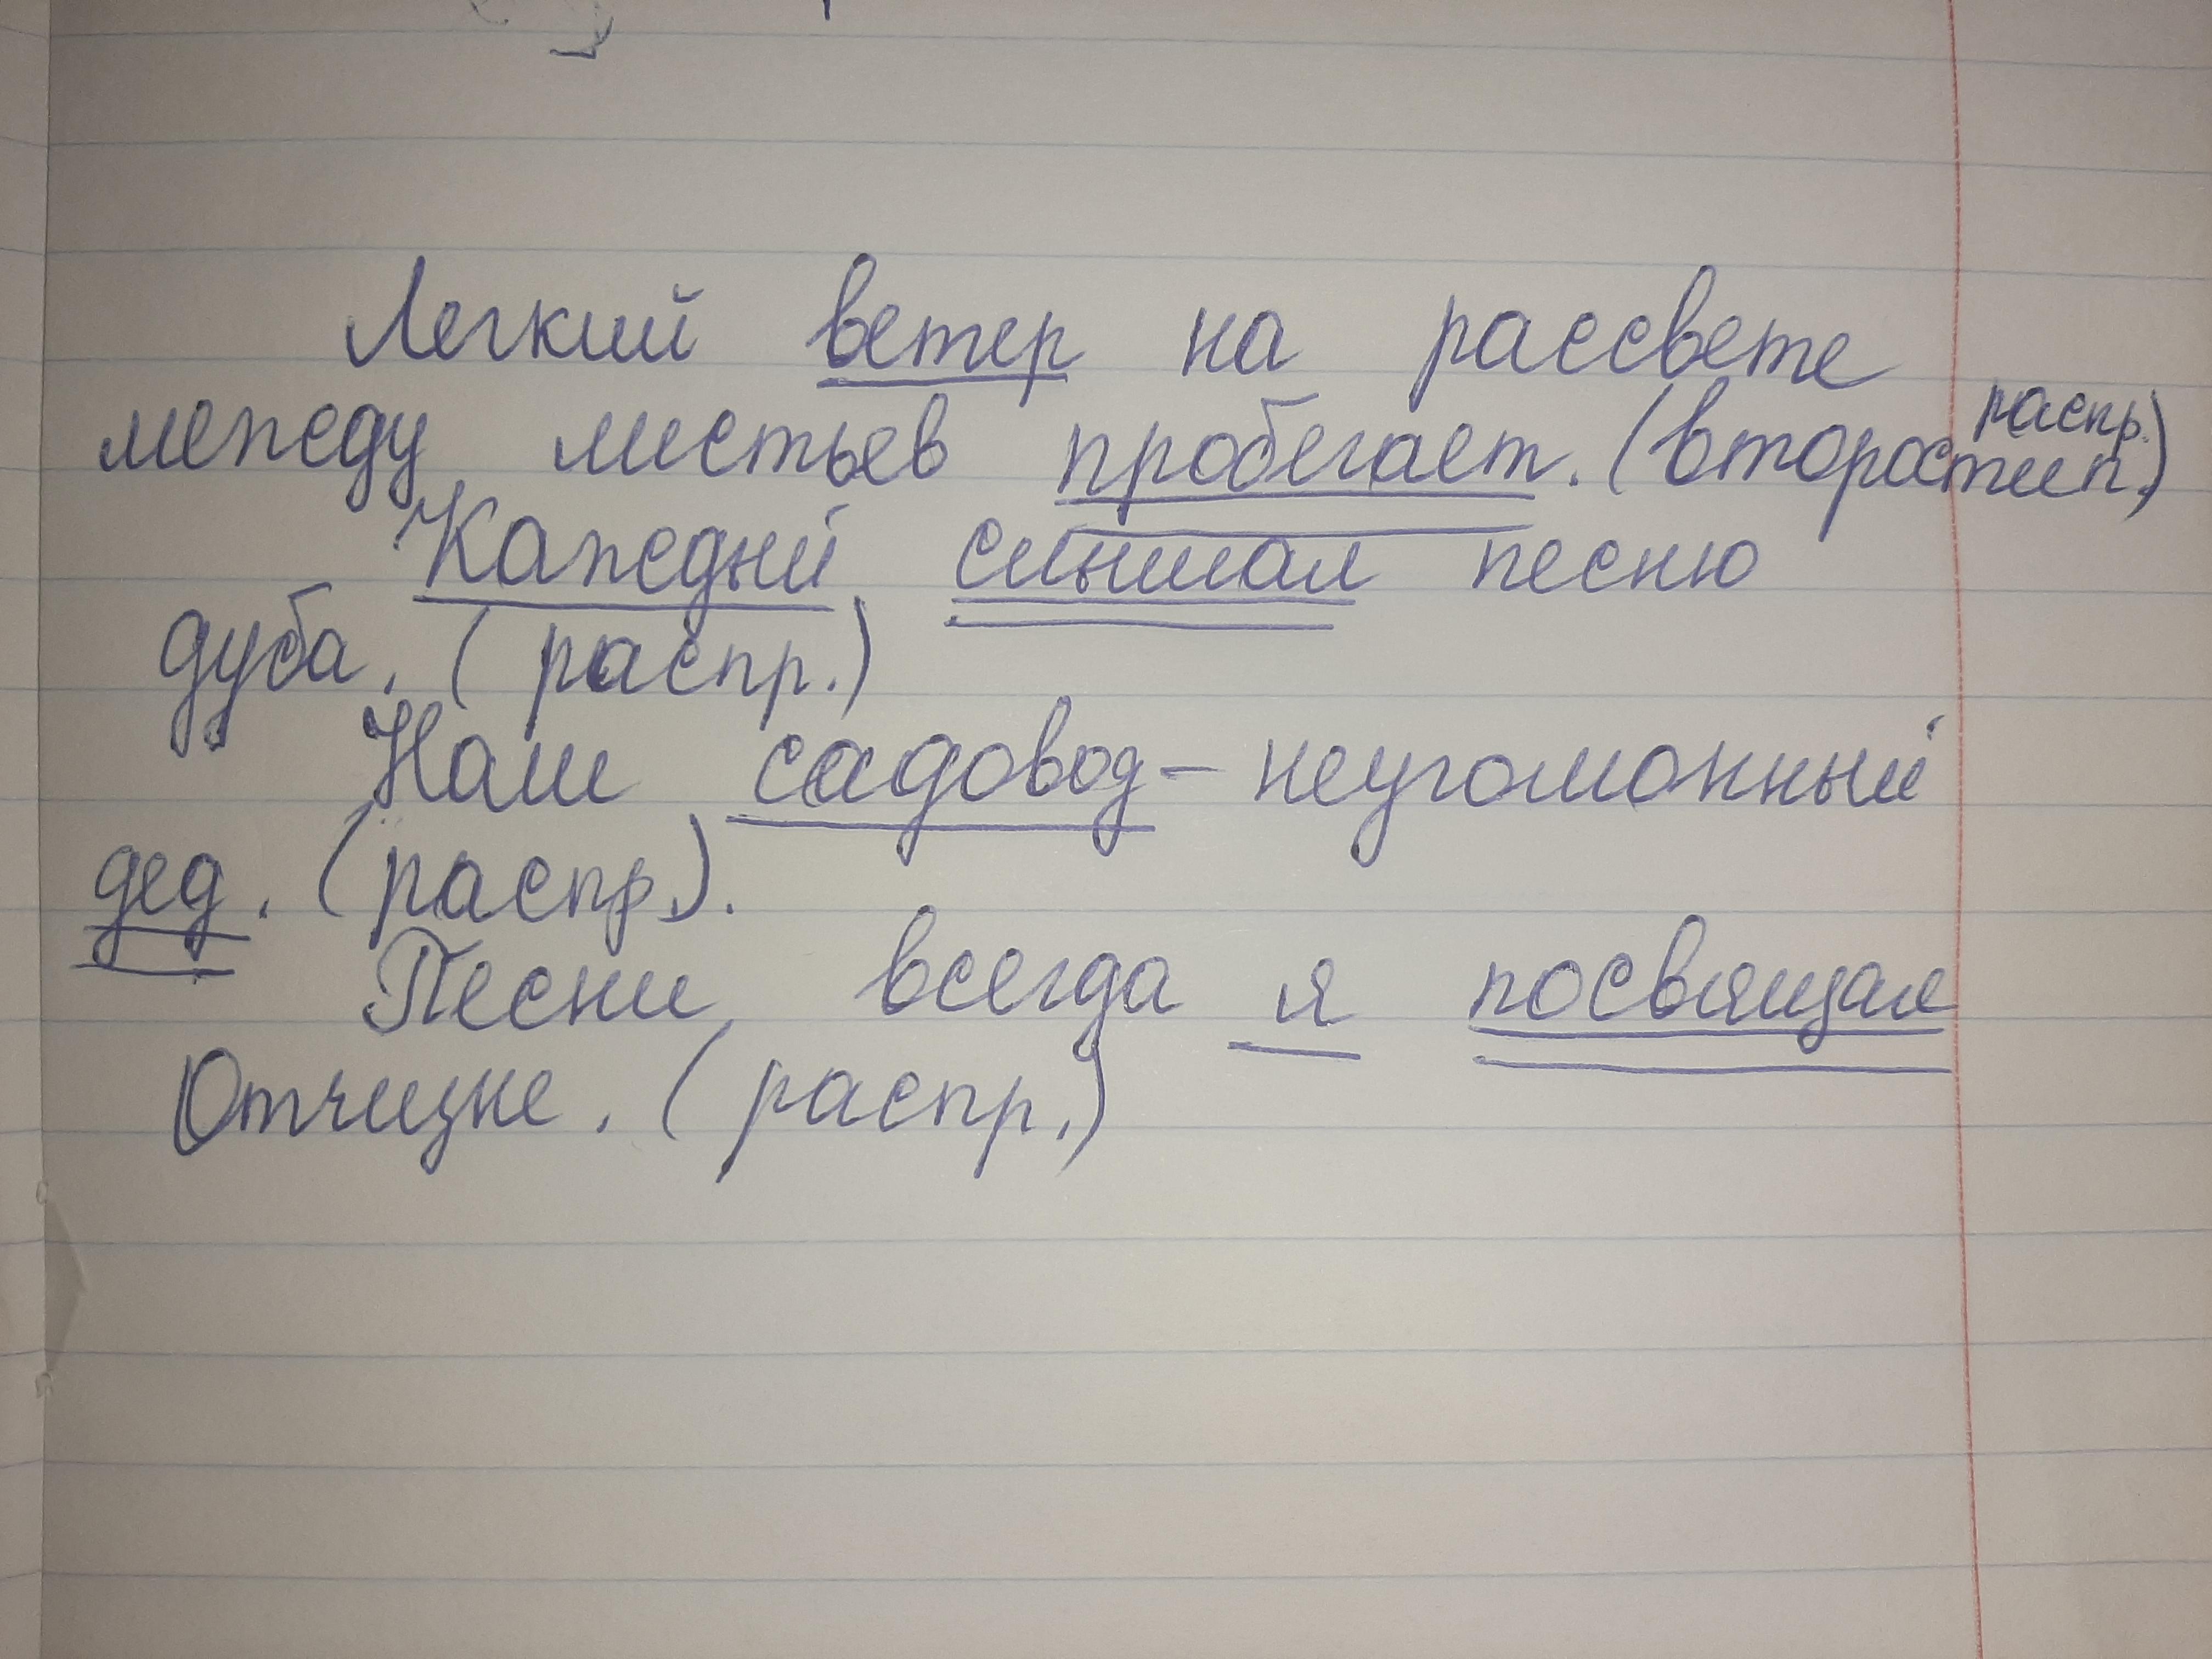 Легкий ветер на рассвете
между листьев пробегает. (второстеп. распр.)
Каждый слышал песню
дуба. (распр.)
Наш садовод - неугомонный
дед. (распр.).
Песни всегда я посвящал
Отчизне. (распр.)